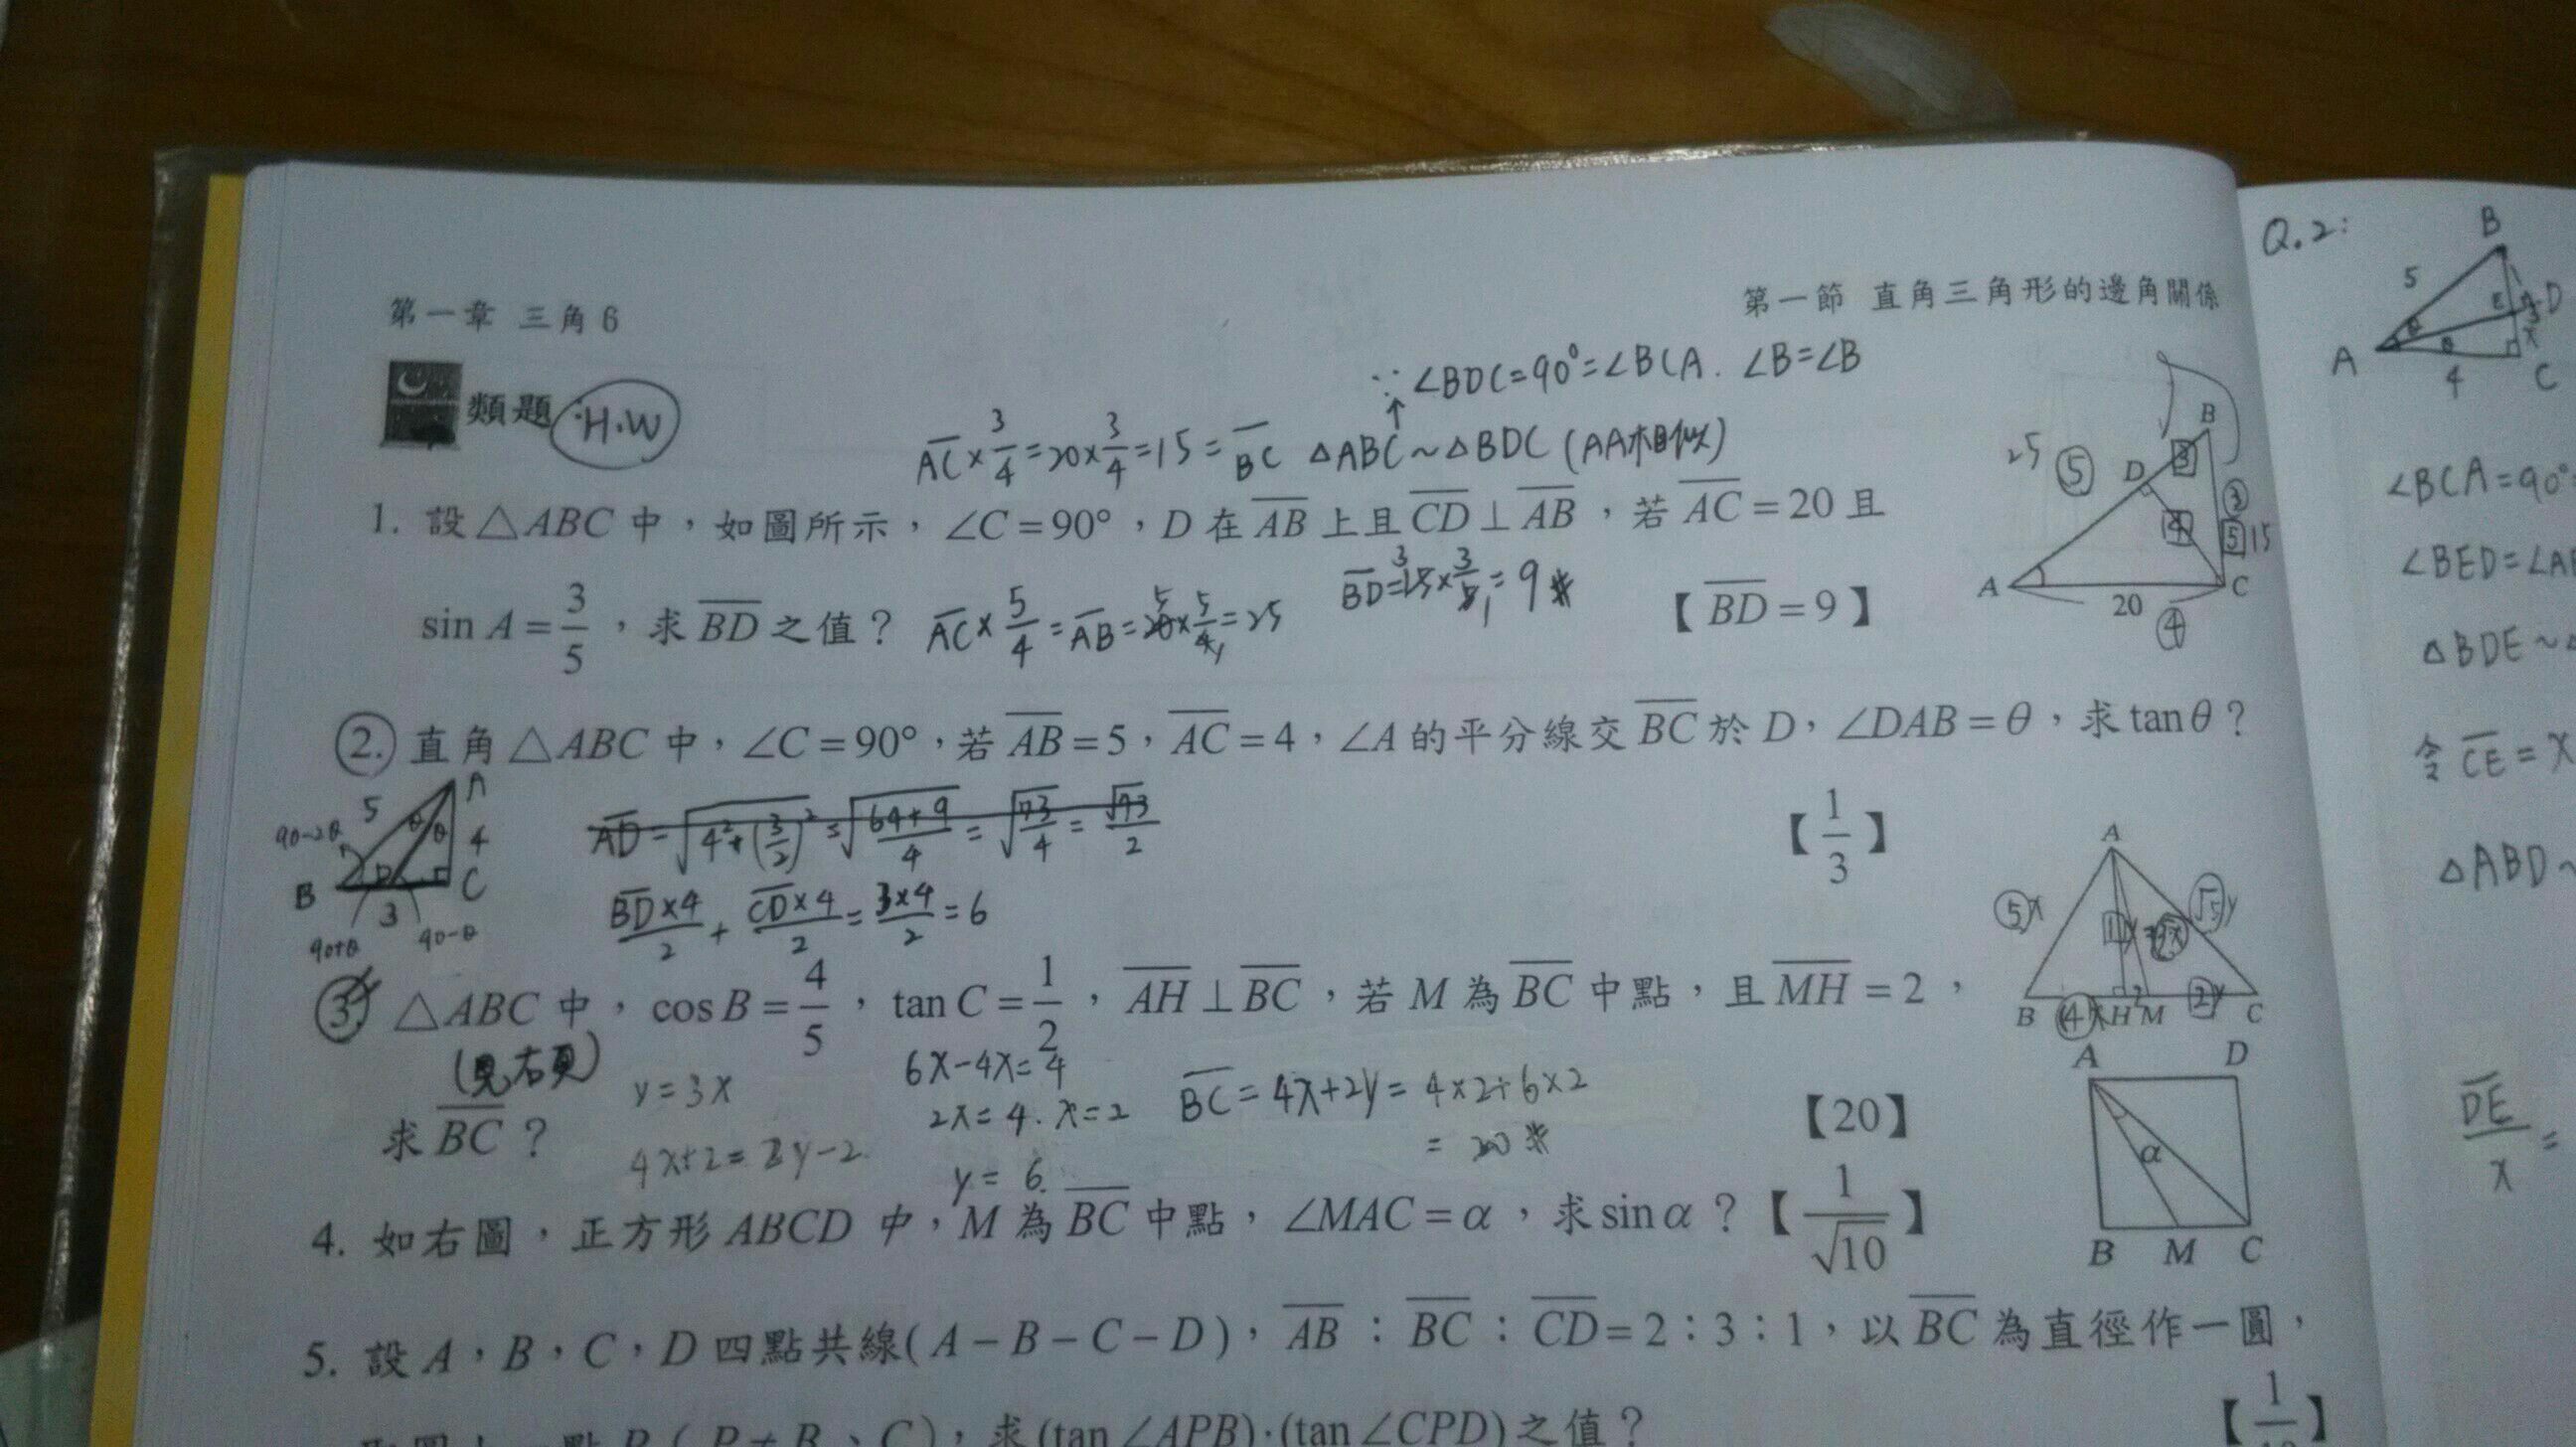 第一章 三角6
第一節 直角三角形的邊角關係
類題 H.W
∵ ∠BDC=90°=∠BCA. ∠B=∠B
AC×3/4=20×3/4=15=BC △ABC~△BDC (AA相似)
1. 設△ABC中，如圖所示，∠C=90°，D在AB上且CD⊥AB，若AC=20且
sin A=3/5，求BD之值？ AC×5/4=AB=20×5/4=25
BD=15×3/5=9
【BD=9】
25 ⑤ B D 3 ③ 4 5 15 A 20 ④ C
2. 直角△ABC中，∠C=90°，若AB=5，AC=4，∠A的平分線交BC於D，∠DAB=θ，求tanθ？
【1/3】
A 5 θ θ 4 90-2θ B D C 3 90+θ 90-θ
AD=√(4²+(3/2)²)=√((64+9)/4)=√(73/4)=√73/2
BD×4/2+CD×4/2=3×4/2=6
3. △ABC中，cosB=4/5，tanC=1/2，AH⊥BC，若M為BC中點，且MH=2，
(見右頁)
求BC？
y=3x
4x+2=2y-2
6x-4x=4
2x=4. x=2
y=6.
BC=4x+2y=4×2+6×2
=20
【20】
A ⑤x √5y B ④x H 2 M 2y C
4. 如右圖，正方形ABCD中，M為BC中點，∠MAC=α，求sinα？【1/√10】
A D α B M C
5. 設A，B，C，D四點共線(A-B-C-D)，AB：BC：CD=2：3：1，以BC為直徑作一圓，
(tan∠APB)·(tan∠CPD)之值？
Q.2:
B 5 D E θ θ x A 4 C
∠BCA=90°
∠BED=∠A
△BDE~
令CE=x
△ABD~
DE/x=